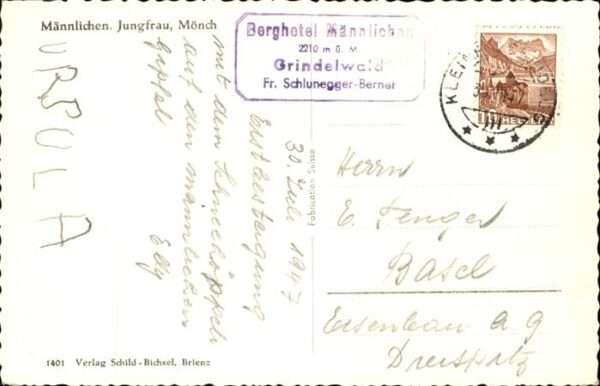 Männlichen. Jungfrau, Mönch
Berghotel Männlichen
2210 m ü. M.
Grindelwald
Fr. Schlunegger-Berner
KLEI
HELVETIA
30 Juli 1947
Erstbesteigung
mit dem Schneehöppeli
auf den männlichen
Gipfel
Elly
URSULA
Fabrication Suisse
Herrn
E. Fenger
Basel
Eisenbau a g
Dreispitz
1401 Verlag Schild-Bichsel, Brienz